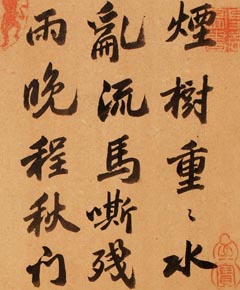 煙樹重〻水
亂流馬嘶殘
雨晚程秋门